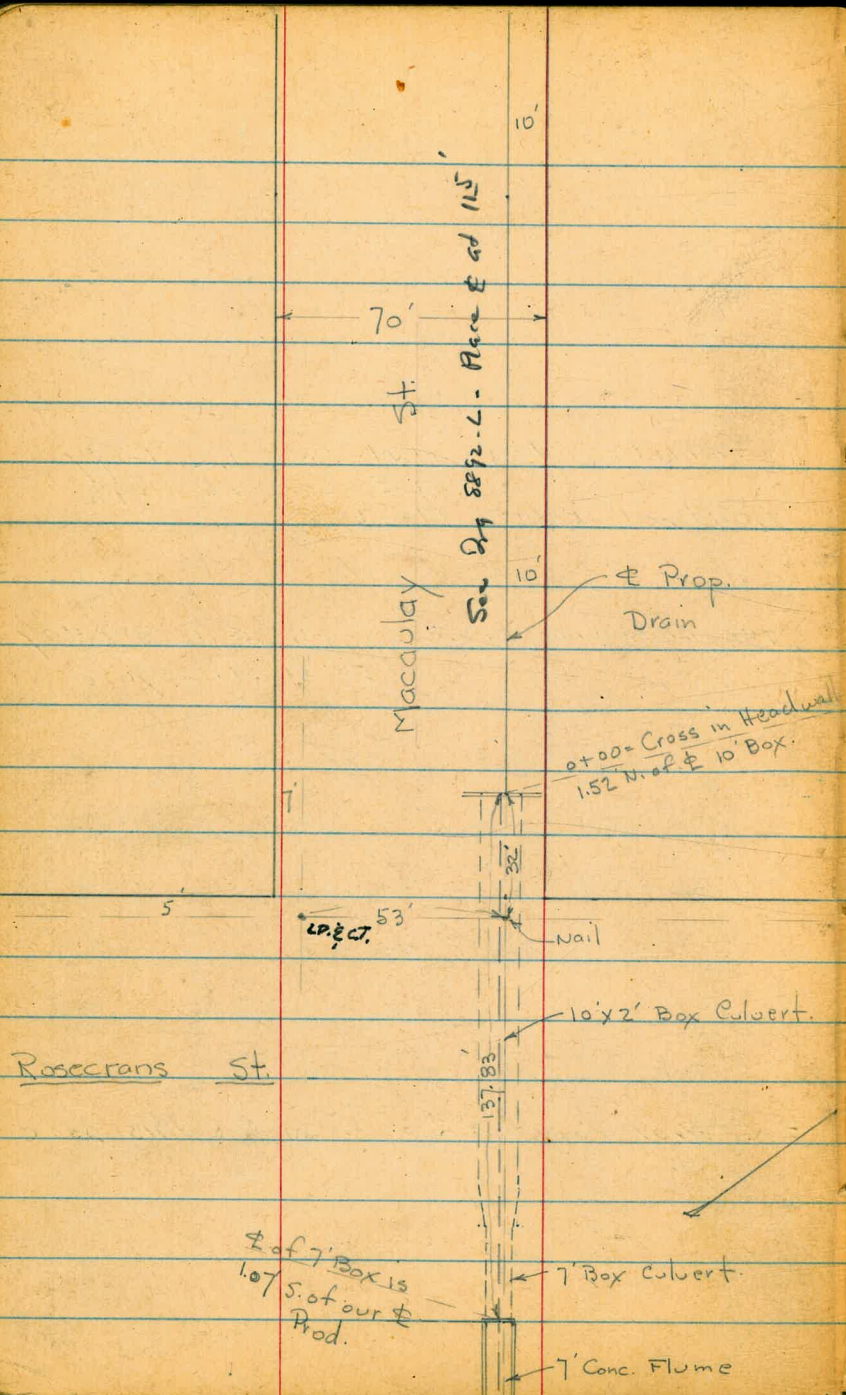 10'
See Drg 8892-L - Place ℄ at 11.5'
70'
Macaulay St.
10'
℄ Prop.
Drain
0+00= Cross in Headwall
1.52' N. of ℄ 10' Box.
7'
32'
5'
53'
LD. & CT.
Nail
10'x2' Box Culvert.
Rosecrans St.
137.83'
℄ of 7' Box is
1.07 S. of our ℄
Prod.
7' Box Culvert.
7' Conc. Flume